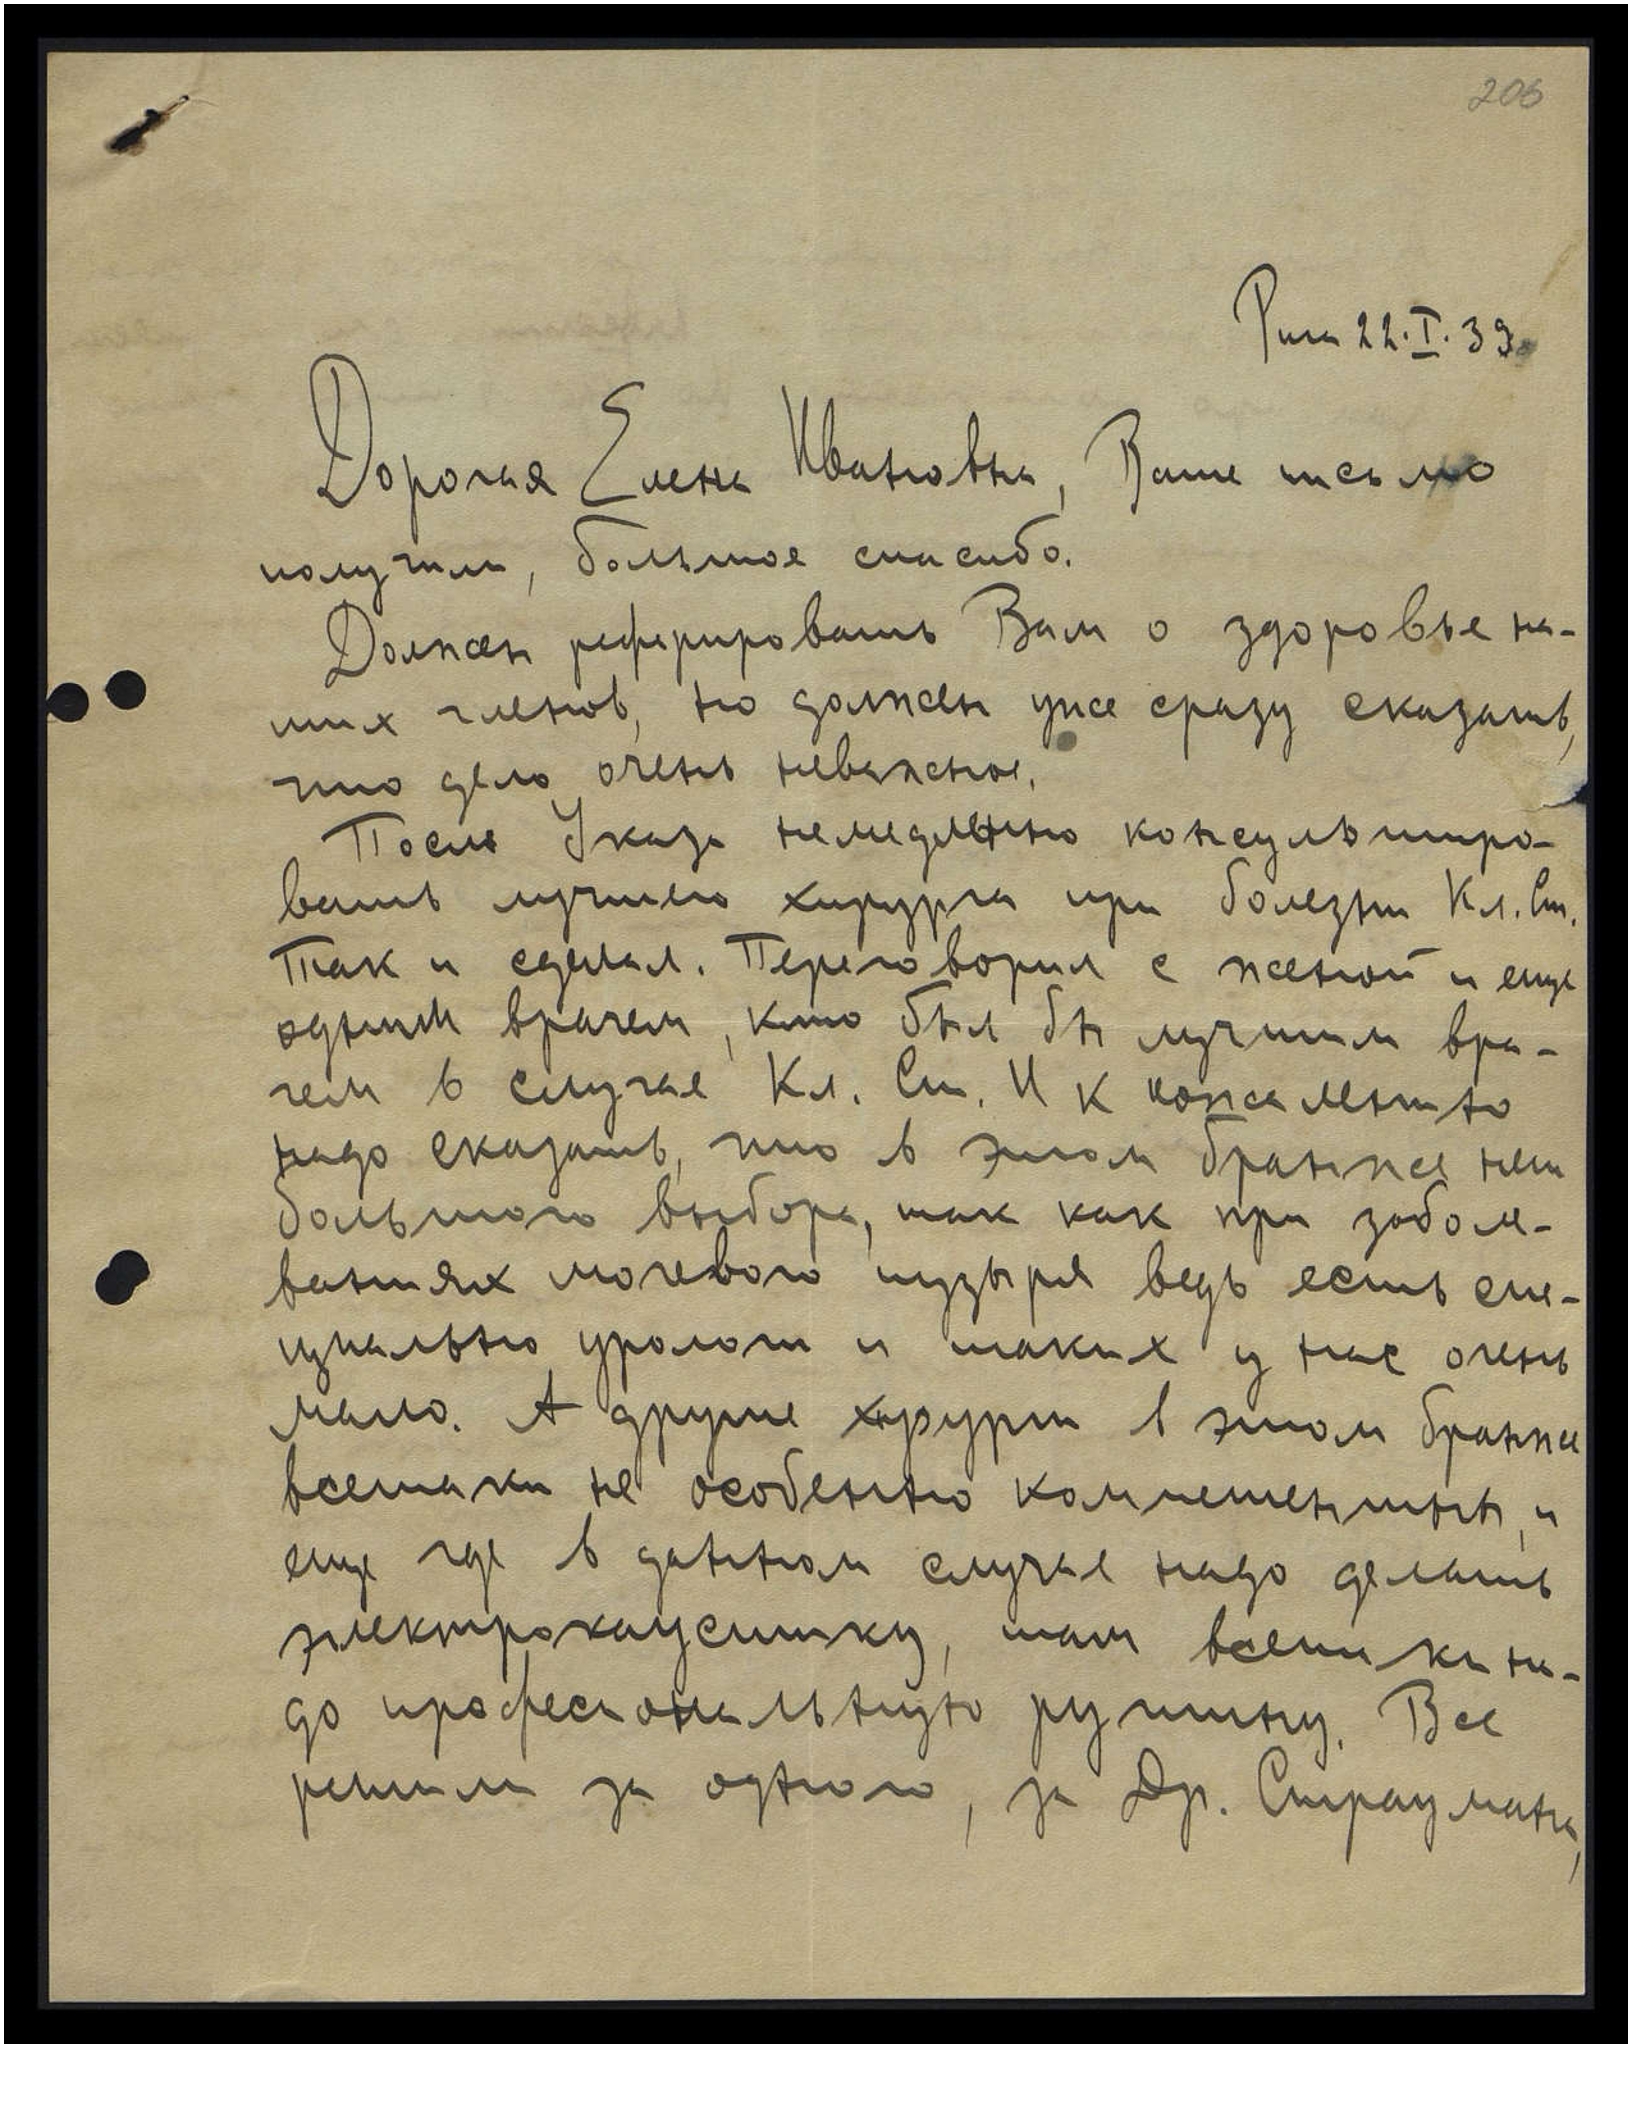 206
Рига 22.I.39.
Дорогая Елена Ивановна, Ваше письмо
получили, большое спасибо.
Должен реферировать Вам о здоровье на-
ших членов, но должен уже сразу сказать,
что дело очень неважное.
После Указа немедленно консультиро-
вать лучшего хирурга при болезни Кл. Ст.
Так и сделал. Переговорил с женой и еще
одним врачем, кто был бы лучшим вра-
чем в случае Кл. Ст. И к
надо сказать, что в этом бранже нет
большого выбора, так как при заболе-
ваниях мочевого пузыря ведь есть спе-
циально урологи и таких у нас очень
мало. А другие хирурги в этом бранже
всетаки не особенно компетентны, и
еще где в данном случае надо делать
электрокаустику, там всетаки на-
до професиональную рутину. Все
решили за одного, за Др. Страумана,